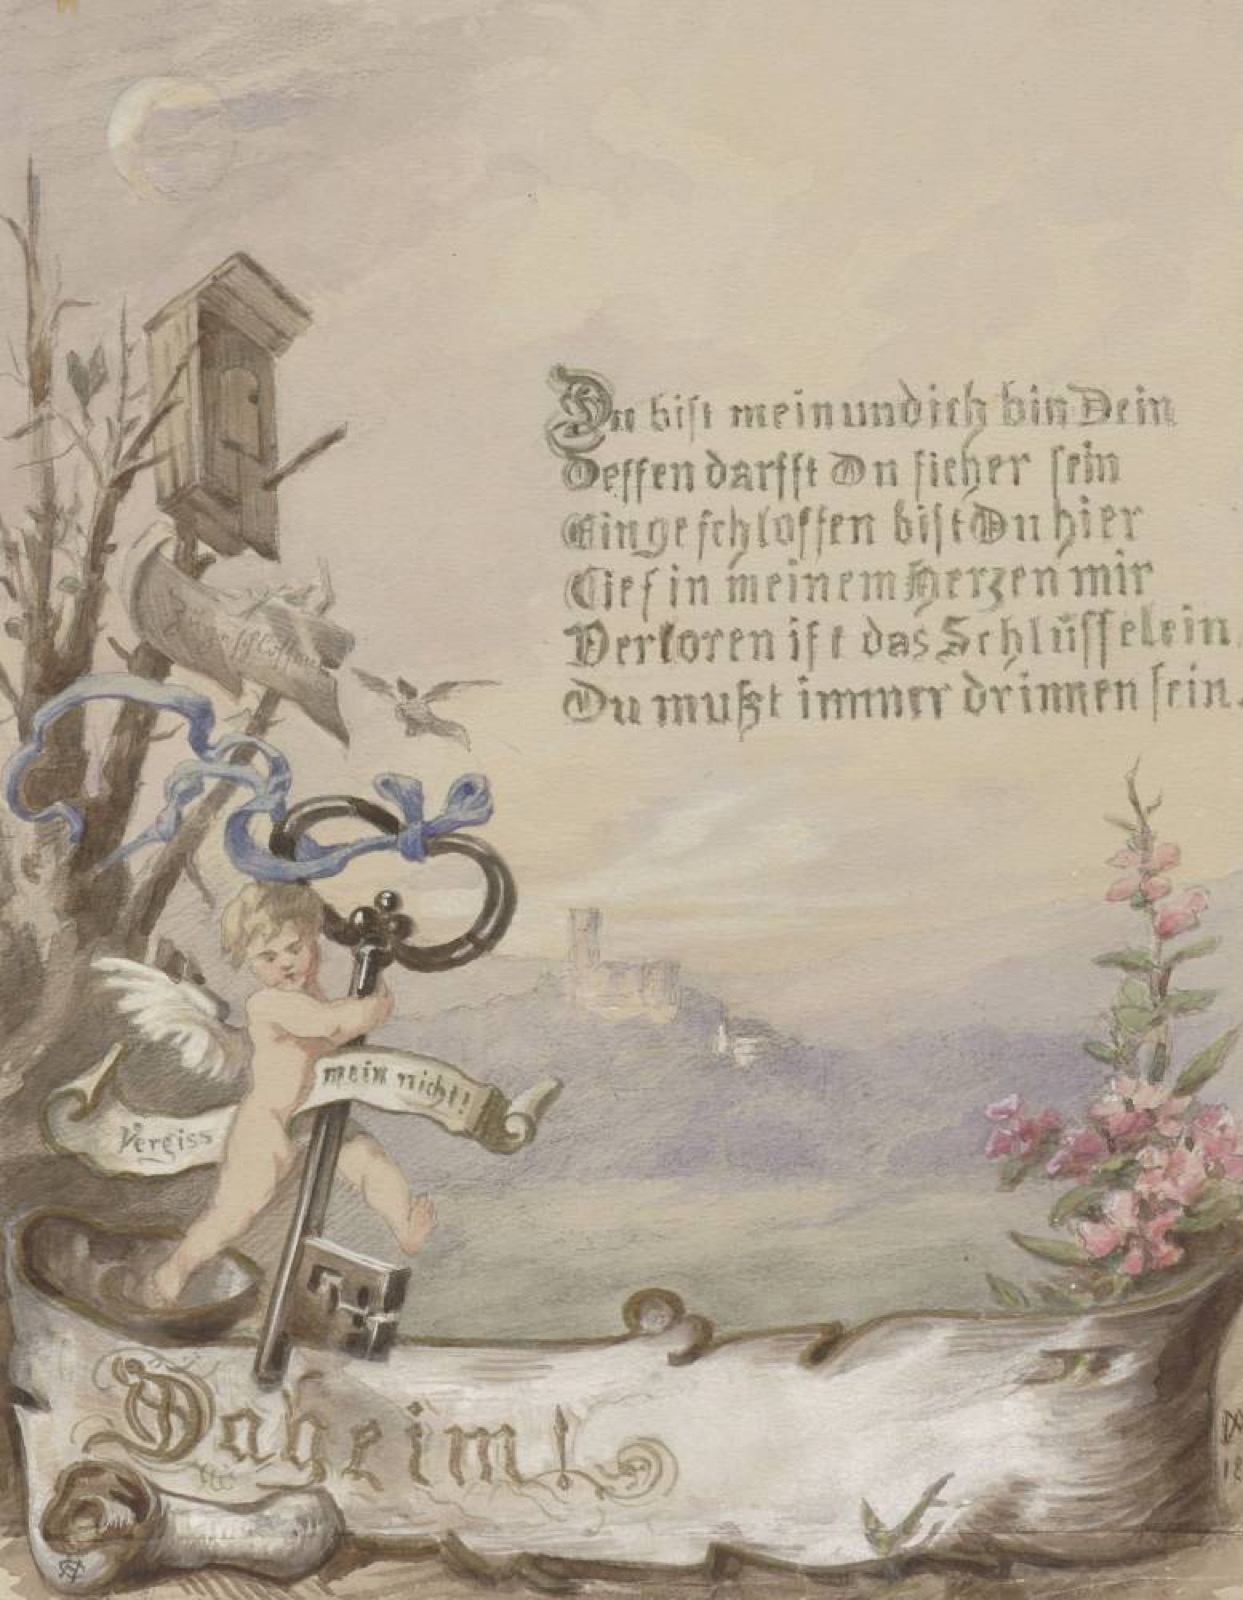 Du bist mein und ich bin Dein
Deſſen darfſt Du ſicher ſein
Eingeſchloſſen biſt Du hier
Tief in meinem Herzen mir
Verloren iſt das Schlüſſelein,
Du mußt immer drinnen ſein.
Eingeſchloſſen
mein nicht!
Vergiss
Daheim!